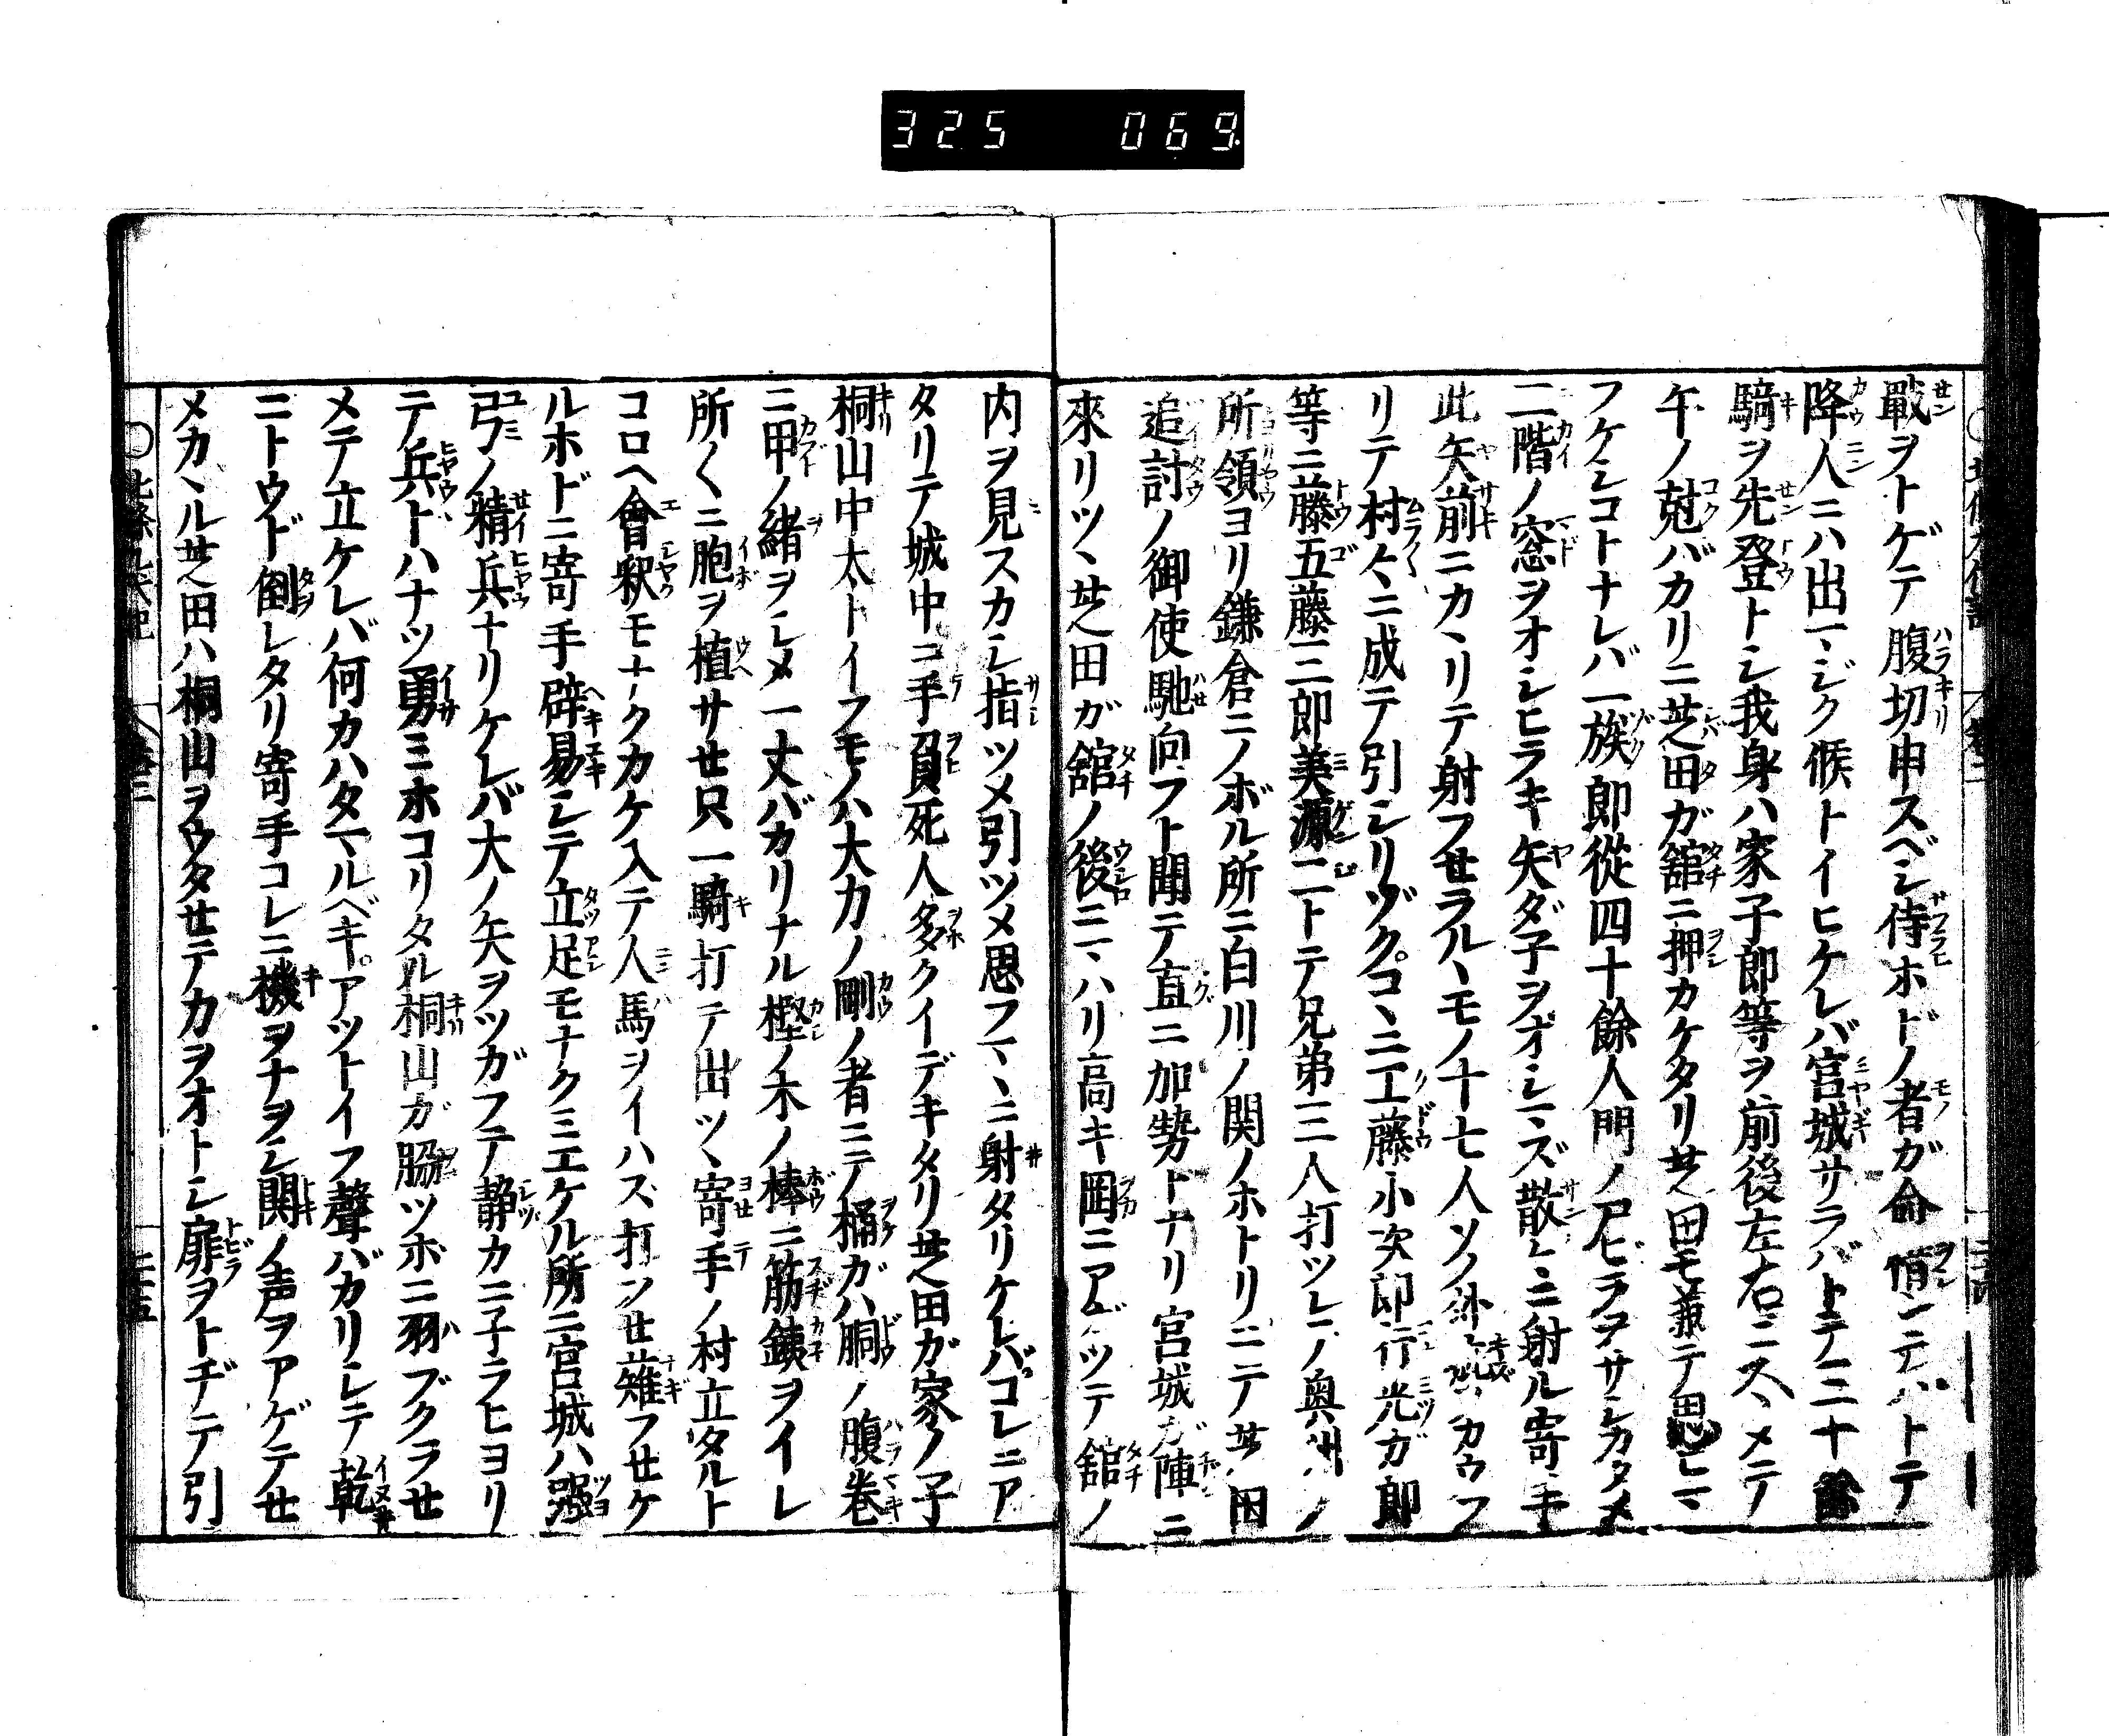 325 069
戰ヲトゲテ腹切申スベシ侍ホドノ者ガ命惜シテハトテ
降人ニハ出マジク候トイヒケレバ宮城サラバトテ三十餘
騎ヲ先登トシ我身ハ家子郎等ヲ前後左右ニスヽメテ
午ノ尅バカリニ芝田ガ舘ニ押カケタリ芝田モ兼テ思ヒマ
フケシコトナレバ一族郎從四十餘人門ノ戸ビラヲサシカタメ
二階ノ窓ヲオシヒラキ矢ダ子ヲオシマズ散々ニ射ル寄手
此矢前ニカヽリテ射フセラルヽモノ十七人ソノ外疵カウフ
リテ村々ニ成テ引シリゾクコヽニ工藤小次郎行光ガ郎
等ニ藤五藤三郎美源二トテ兄弟三人打ツレノ奥州ノ
所領ヨリ鎌倉ニノボル所ニ白川ノ関ノホトリニテ芝田
追討ノ御使馳向フト聞テ直ニ加勢トナリ宮城ガ陣ニ
來リツヽ芝田ガ舘ノ後ニマハリ高キ岡ニアガツテ舘ノ
内ヲ見スカシ指ツメ引ツメ思フマヽニ射タリケレバコレニア
タリテ城中ニ手負死人多クイデキタリ芝田ガ家ノ子
桐山中太トイフモノハ大力ノ剛ノ者ニテ桶ガハ胴ノ腹巻
ニ甲ノ緒ヲシメ一丈バカリナル樫ノ木ノ棒ニ筋鉄ヲイレ
所〱ニ胞ヲ植サセ只一騎打テ出ツヽ寄手ノ村立タルト
コロヘ會釈モナクカケ入テ人馬ヲイハス打ンセ薙フセケ
ルホドニ寄手辟易シテ立足モナクミエケル所ニ宮城ハ强
弓ノ精兵ナリケレバ大ノ矢ヲツガフテ静カニ子ラヒヨリ
テ兵トハナツ勇ミホコリタル桐山ガ脇ツボニ羽ブクラセ
メテ立ケレバ何カハタマルベキアツトイフ聲バカリシテ乾
ニトウド倒レタリ寄手コレニ機ヲナヲシ鬨ノ声ヲアゲテセ
メカヽル芝田ハ桐山ヲウタセテカヲオトシ扉ヲトヂテ引